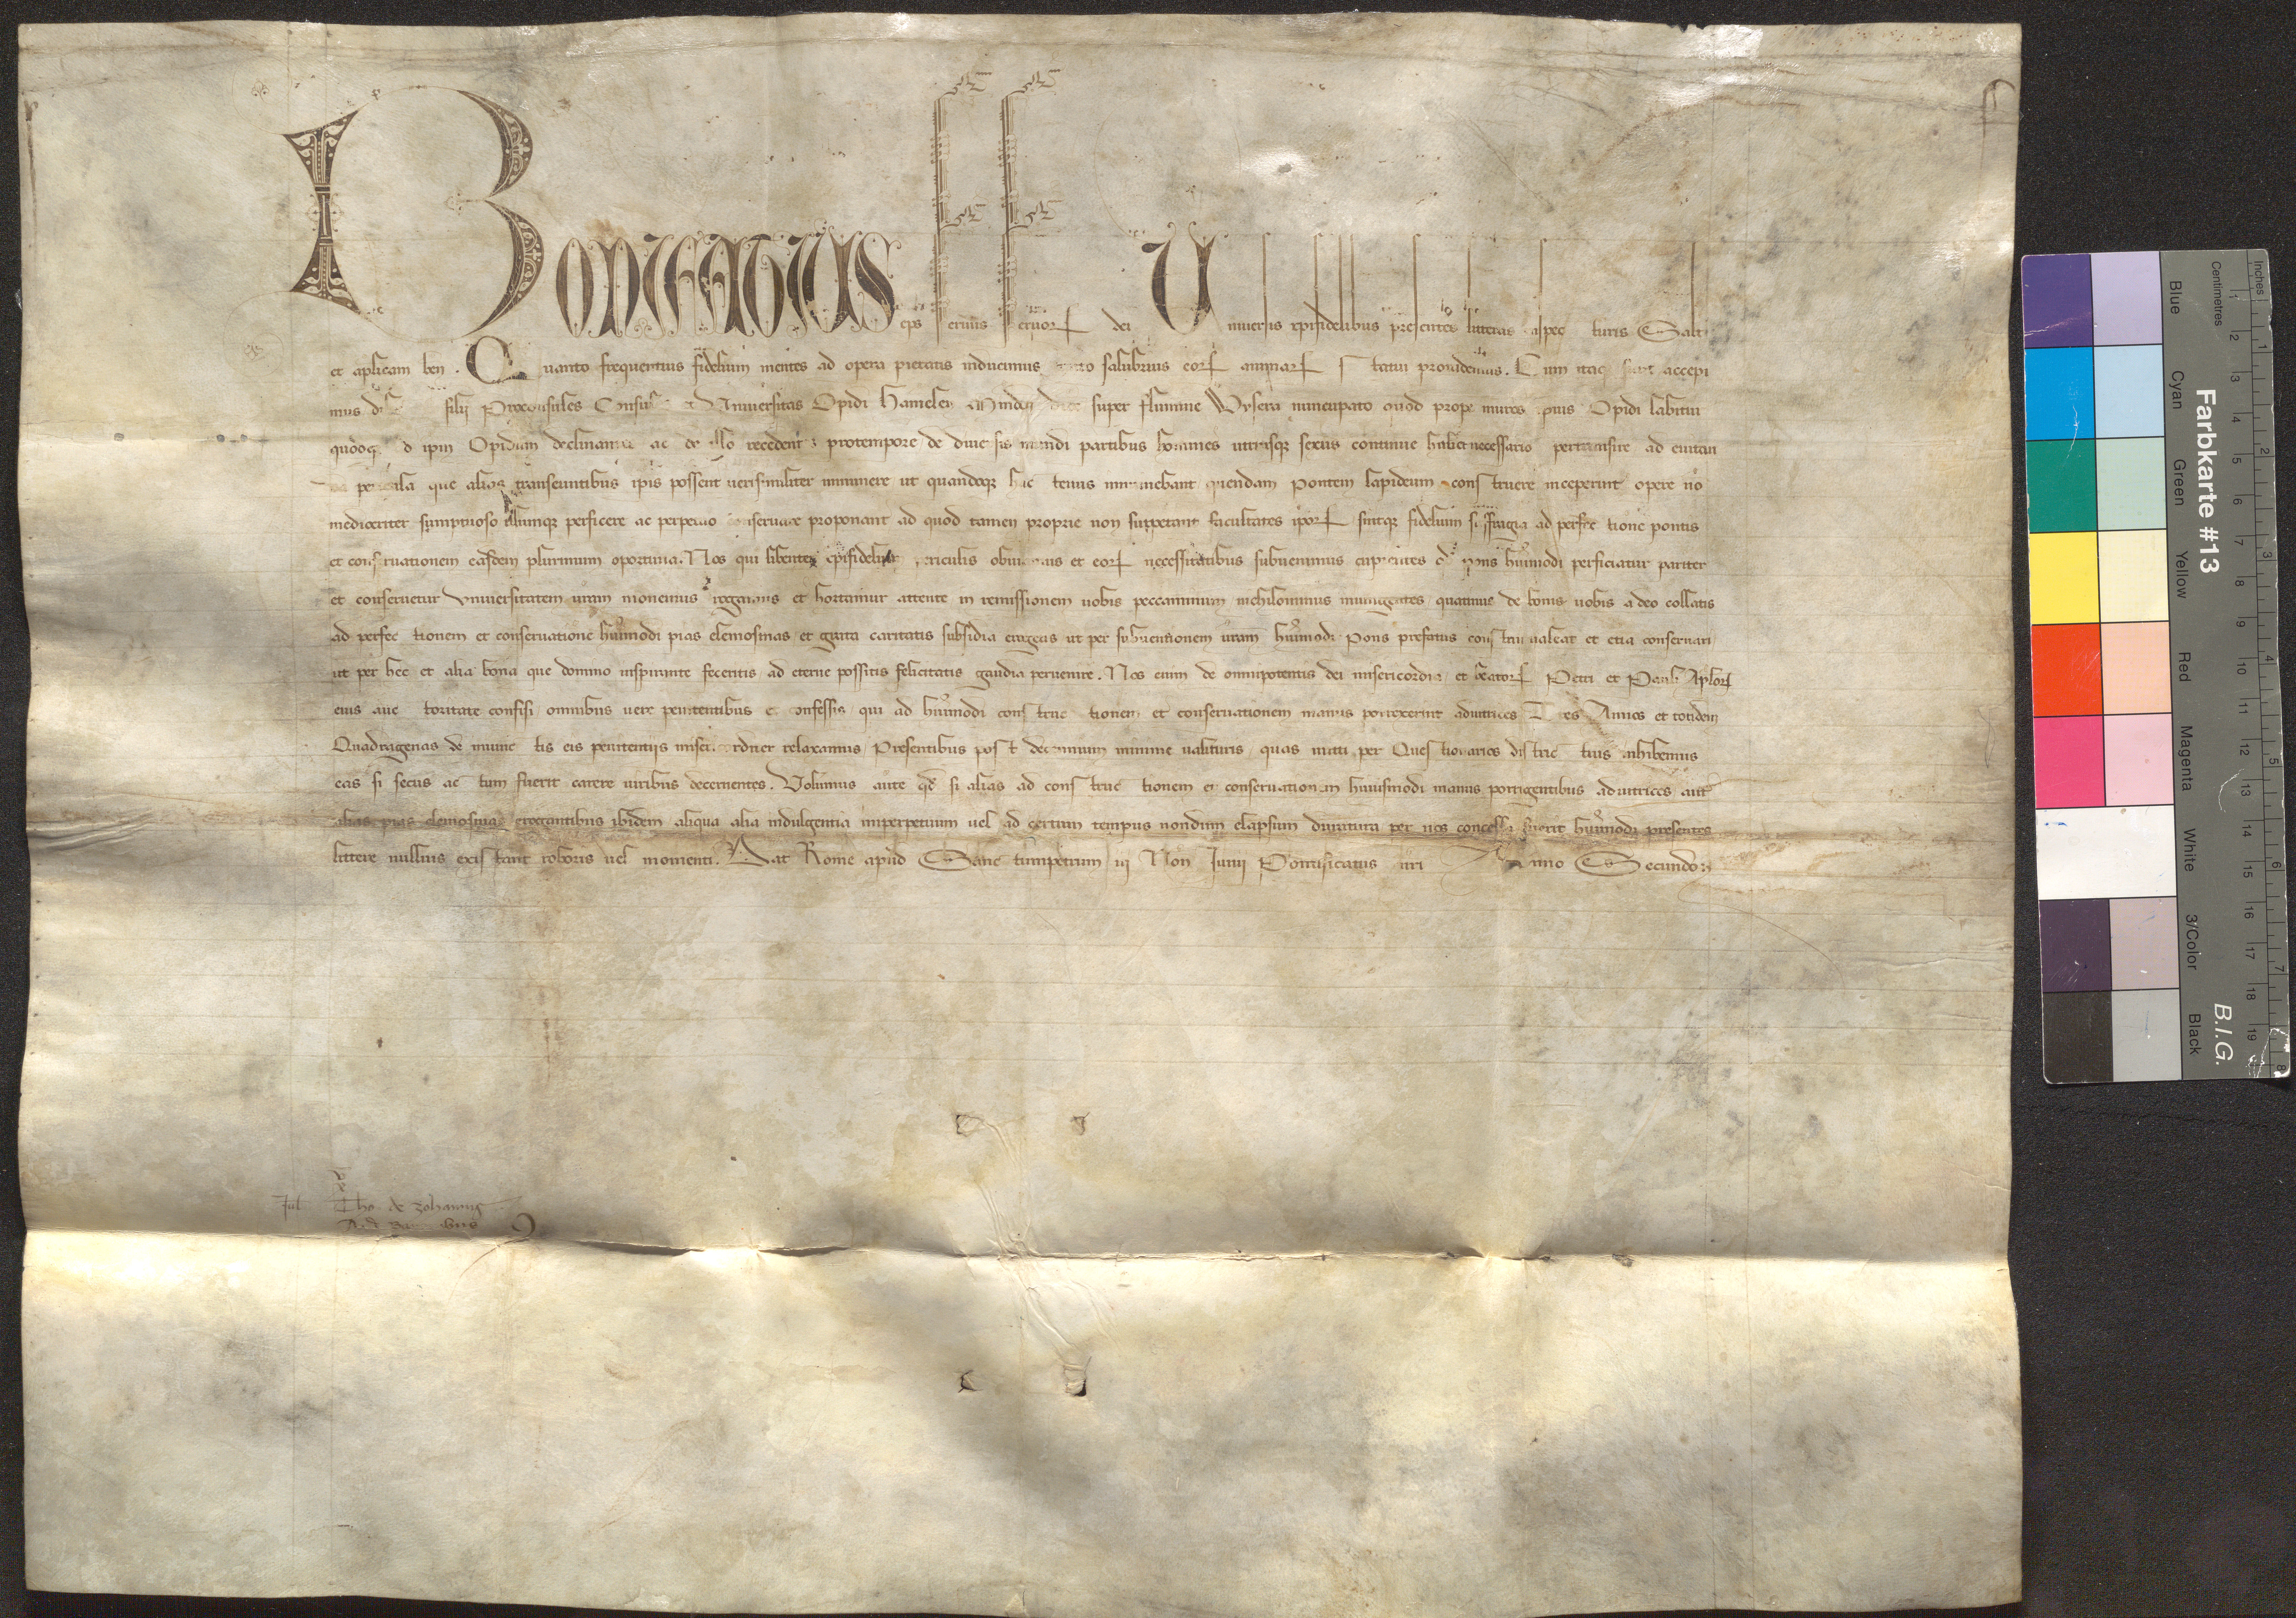 Bonifatius eps seruus seruoꝝ dei Uniuersis xpifidelibus presentes litteras inspecturis Salt
et aplicam ben. Quanto frequentius fidelium mentes ad opera pietatis inducimus tanto salubrius eoꝝ animaꝝ statui prouidemus. Cum itaq sicut accepi
mus filij Proconsules Consules et Vniuersitas Opidi Hamelen super flumine Wysera nuncupato quod prope muros ipius Opidi labitur
quodq ad ipm Opidum declinantes ac de illo recedentes protempore de diuersis mundi partibus homines utriusqꝫ sexus continue habent necessario pertransire ad euitan
da pericula que alias transeuntibus ipis possent uerisimiliter imminere ut quandoqꝫ hactenus imminebant quendam pontem lapideum construere inceperint opere no
mediocriter sumptuoso illumqꝫ perficere ac perpetuo conseruare proponant ad quod tamen proprie non suppetant facultates ipoꝝ sintqꝫ fidelium suffragia ad perfectione pontis
et conseruationem easdem plurimum oportuna. Nos qui libenter xpifidelium periculis obuiamus et eoꝝ necessitatibus subuenimus cupientes qd pons huiusmodi perficiatur pariter
et conseruetur Vniuersitatem uram monemus rogamus et hortamur attente in remissionem uobis peccaminum nichilominus iniungentes quatinus de bonis uobis a deo collatis
ad perfectionem et conseruatione huiusmodi pias elemosinas et grata caritatis subsidia erogetis ut per subuentionem uram huiusmodi Pons prefatus construi ualeat et etia conseruari
ut per hec et alia bona que domino inspirante feceritis ad eterne possitis felicitatis gaudia peruenire. Nos enim de omnipotentis dei misericordia et beatoꝝ Petri et Pauli Aploꝝ
eius auctoritate confisi omnibus uere penitentibus et confessis qui ad huiusmodi constructionem et conseruationem manus porrexerint adiutrices Tres Annos et totidem
Quadragenas de iniunctis eis penitentijs misericorditer relaxamus Presentibus post decennium minime ualituris quas mitti per Questionarios districtius inhibemus
eas si secus actum fuerit carere uiribus decernentes. Volumus aute qd si alias ad constructionem et conseruationem huiusmodi manus porrigentibus adiutrices aut
alias pias elemosinas erogantibus ibidem aliqua alia indulgentia imperpetuum uel ad certum tempus nondum elapsum duratura per nos concessa fuerit huiusmodi presentes
littere nullius existant roboris uel momenti. Dat Rome apud Sanctumpetrum iij Non Junij Pontificatus nri Anno Secundo
Jul
Tho de